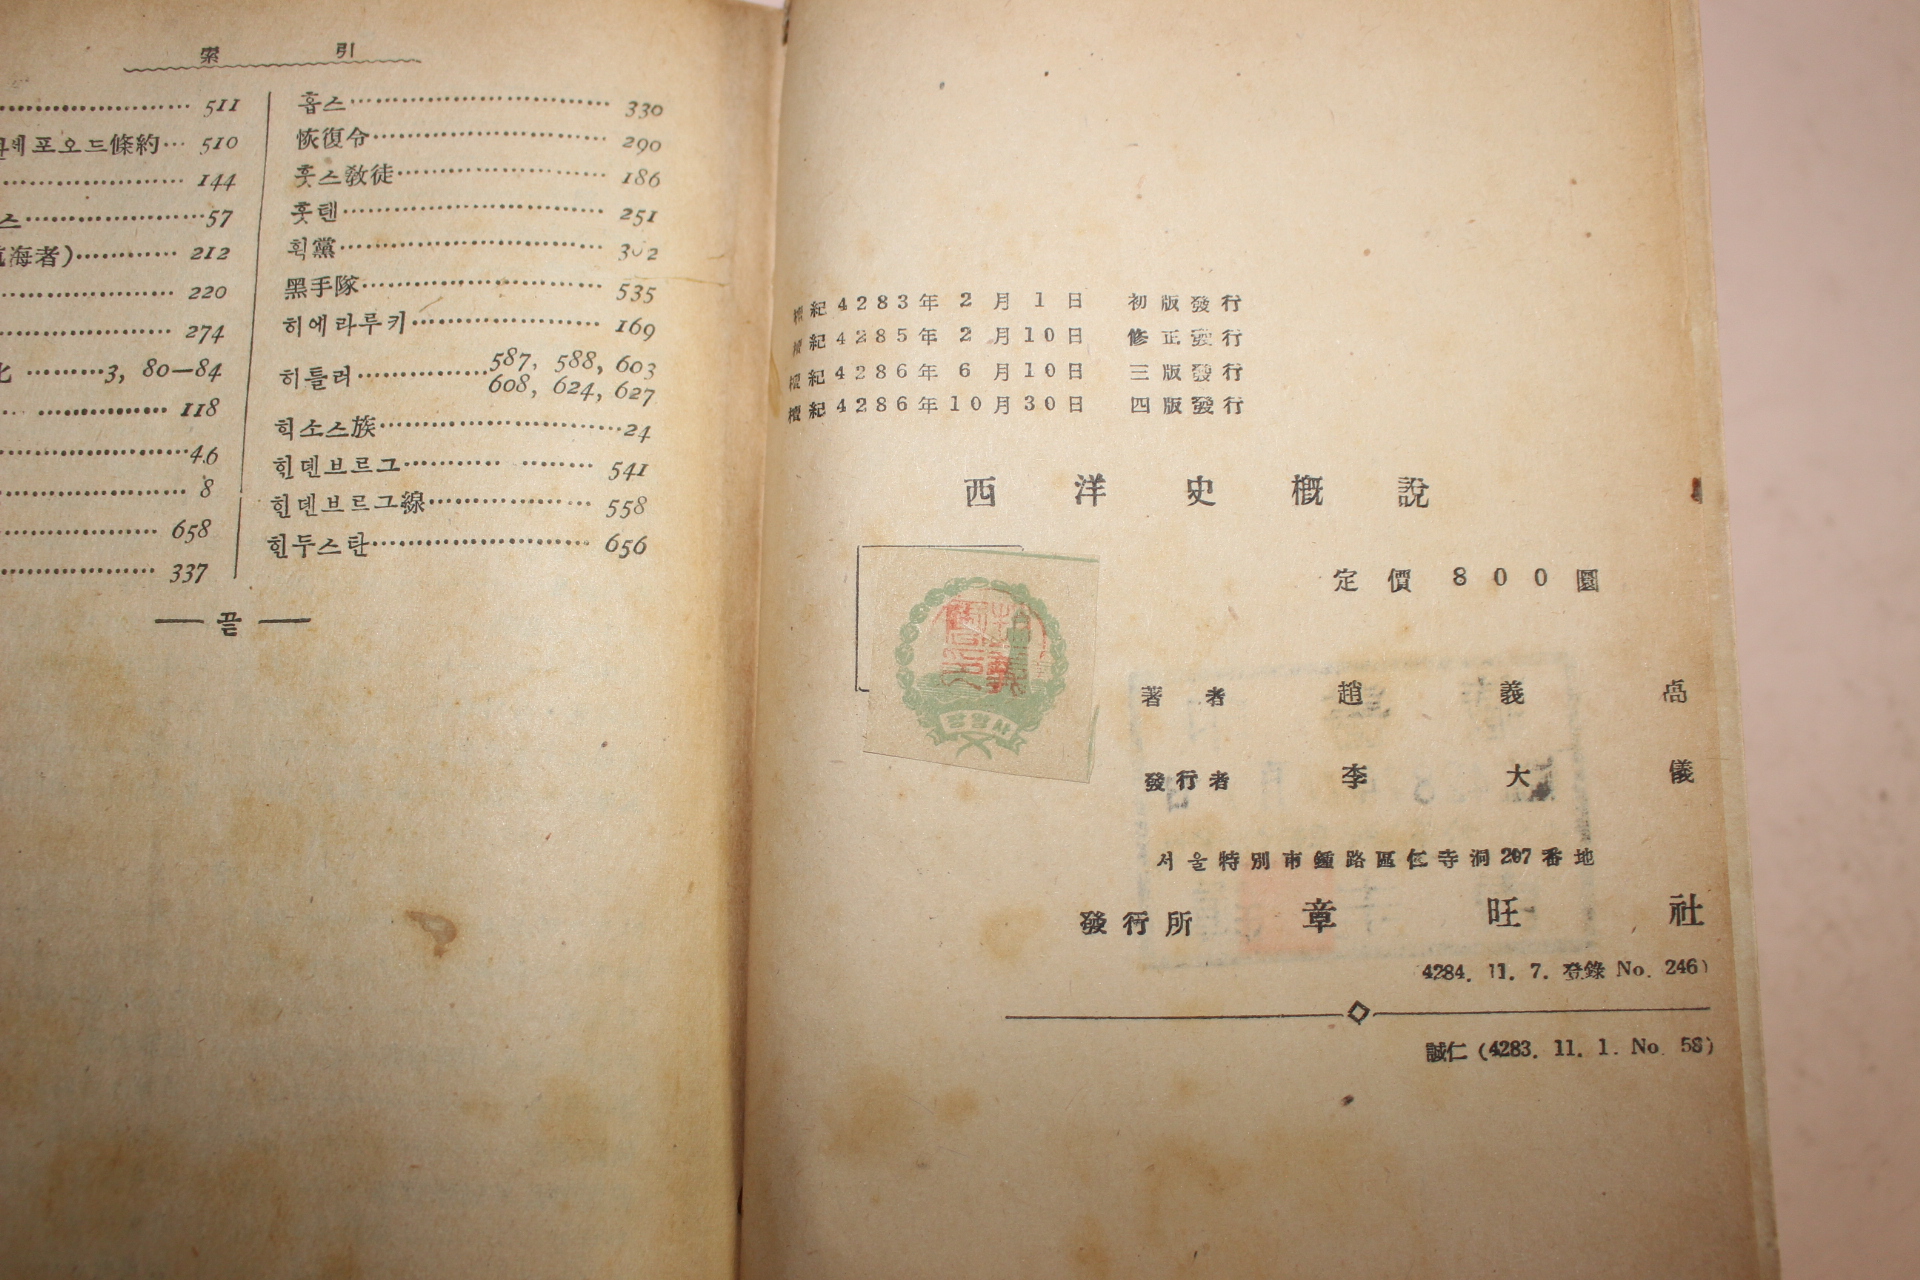 索引
511
포오드條約 510
144
스 57
海者) 212
220
274
化 3, 80—84
118
46
8
658
337
홉스 330
恢復令 290
훗스敎徒 186
훗텐 251
휙黨 302
黑手隊 535
히에라루키 169
히틀러 587, 588, 603
608, 624, 627
힉소스族 24
힌덴브르그 541
힌덴브르그線 558
힌두스탄 656
— 끝 —
檀紀4283年2月1日 初版發行
檀紀4285年2月10日 修正發行
檀紀4286年6月10日 三版發行
檀紀4286年10月30日 四版發行
西洋史概說
定價800圜
장왕사
著者 趙義卨
發行者 李大儀
서울特別市鍾路區仁寺洞207番地
發行所 章旺社
4284. 11. 7. 登錄 No. 246)
誠仁 (4283. 11. 1. No. 58)